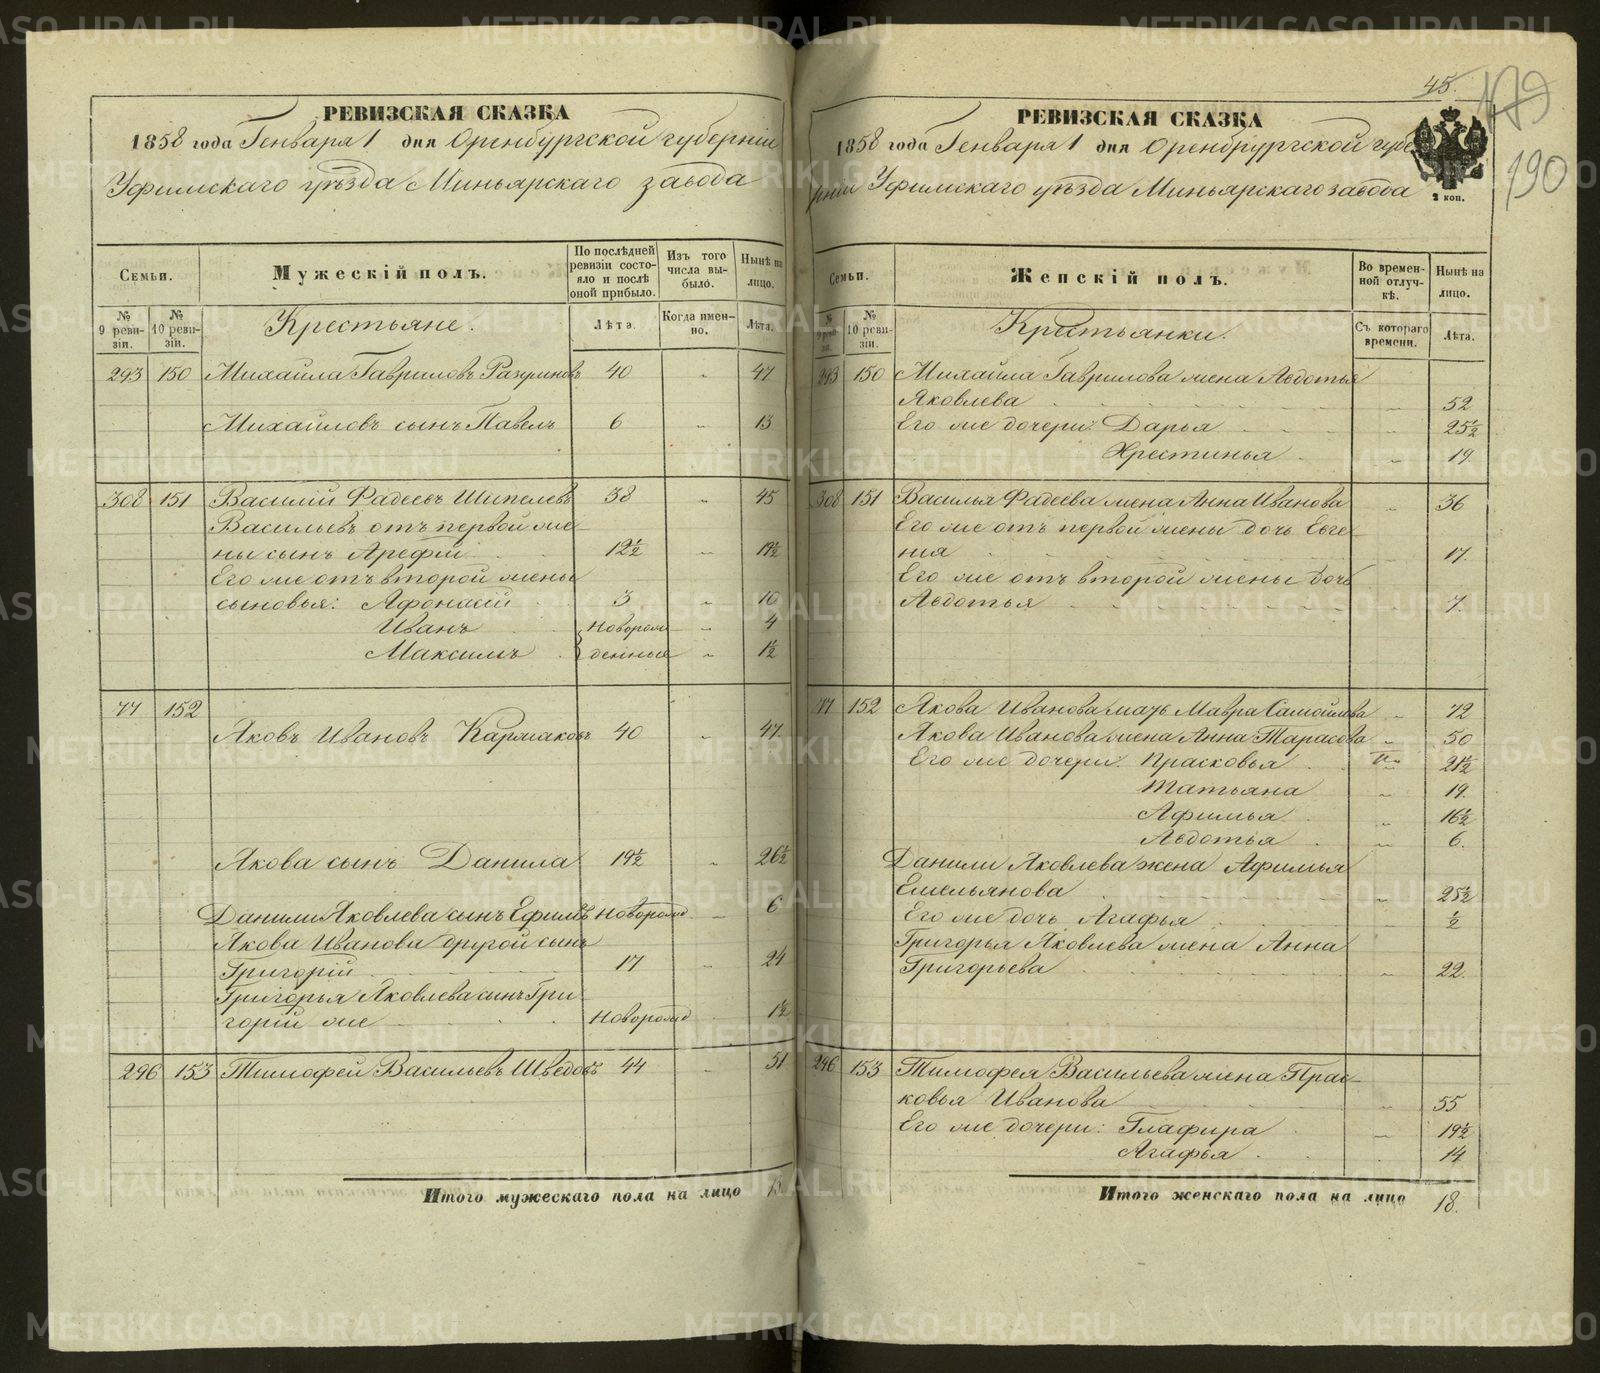 РЕВИЗСКАЯ СКАЗКА
1858 года Генваря 1 дня Оренбургской губернiи
Уфимскаго уѣзда Миньярскаго завода
Семьи.
Мужескій полъ.
По послѣдней ревизіи состо-
яло и послѣ оной прибыло.
Изъ того числа вы-
было.
Нынѣ на лицо.
№ 9 реви-
зіи.
№ 10 реви-
зіи.
Крестьяне.
Лѣта.
Когда имен-
но.
Лѣта.
293 150 Михайла Гавриловъ Разумновъ 40 „ 47
Михайловъ сынъ Павелъ 6 „ 13
308 151 Василій Фадеевъ Шипелевъ 38 „ 45
Васильевъ отъ первой же-
ны сынъ Арефій 12½ „ 19½
Его же отъ второй жены
сыновья: Афонасій 3 „ 10
Иванъ Новорож „ 4
Максимъ денные „ 1½
77 152
Яковъ Ивановъ Кармаковъ 40 „ 47
Якова сынъ Данила 19½ „ 26½
Данилы Яковлева сынъ Ефимъ Новорожд 6
Якова Иванова другой сынъ
Григорій 17 „ 24
Григорья Яковлева сынъ Гри-
горій же Новорожд 1½
296 153 Тимофей Васильевъ Шведовъ 44 „ 51
Итого мужескаго пола на лицо 13.
45.
179
190
РЕВИЗСКАЯ СКАЗКА
1858 года Генваря 1 дня Оренбрургской губе
рніи Уфимскаго уѣзда Миньярскаго завода
2 коп.
Семьи.
Женскій полъ.
Во времен-
ной отлуч-
кѣ.
Нынѣ на лицо.
№ 9 реви-
зіи.
№ 10 реви-
зіи.
Крестьянки.
Съ котораго времени.
Лѣта.
293 150 Михайла Гаврилова жена Авдотья
Яковлева „ 52
Его же дочери: Дарья „ 25½
Хрестинья „ 19.
308 151 Василья Фадеева жена Анна Иванова „ 36
Его же отъ первой жены дочь Евге-
нія „ 17.
Его же отъ второй жены дочь
Авдотья „ 7.
77 152 Якова Иванова мать Мавра Самойлова „ 72
Якова Иванова жена Анна Тарасова „ 50
Его же дочери: Прасковья „ 21½
Татьяна „ 19.
Афимья „ 16½
Авдотья „ 6.
Данилы Яковлева жена Афимья
Емельянова „ 25½
Его же дочь Агафья „ ½
Григорья Яковлева жена Анна
Григорьева „ 22.
296 153 Тимофея Васильева жена Прас-
ковья Иванова „ 55
Его же дочери: Глафира „ 19½
Агафья „ 14
Итого женскаго пола на лицо 18.
METRIKI.GASO-URAL.RU